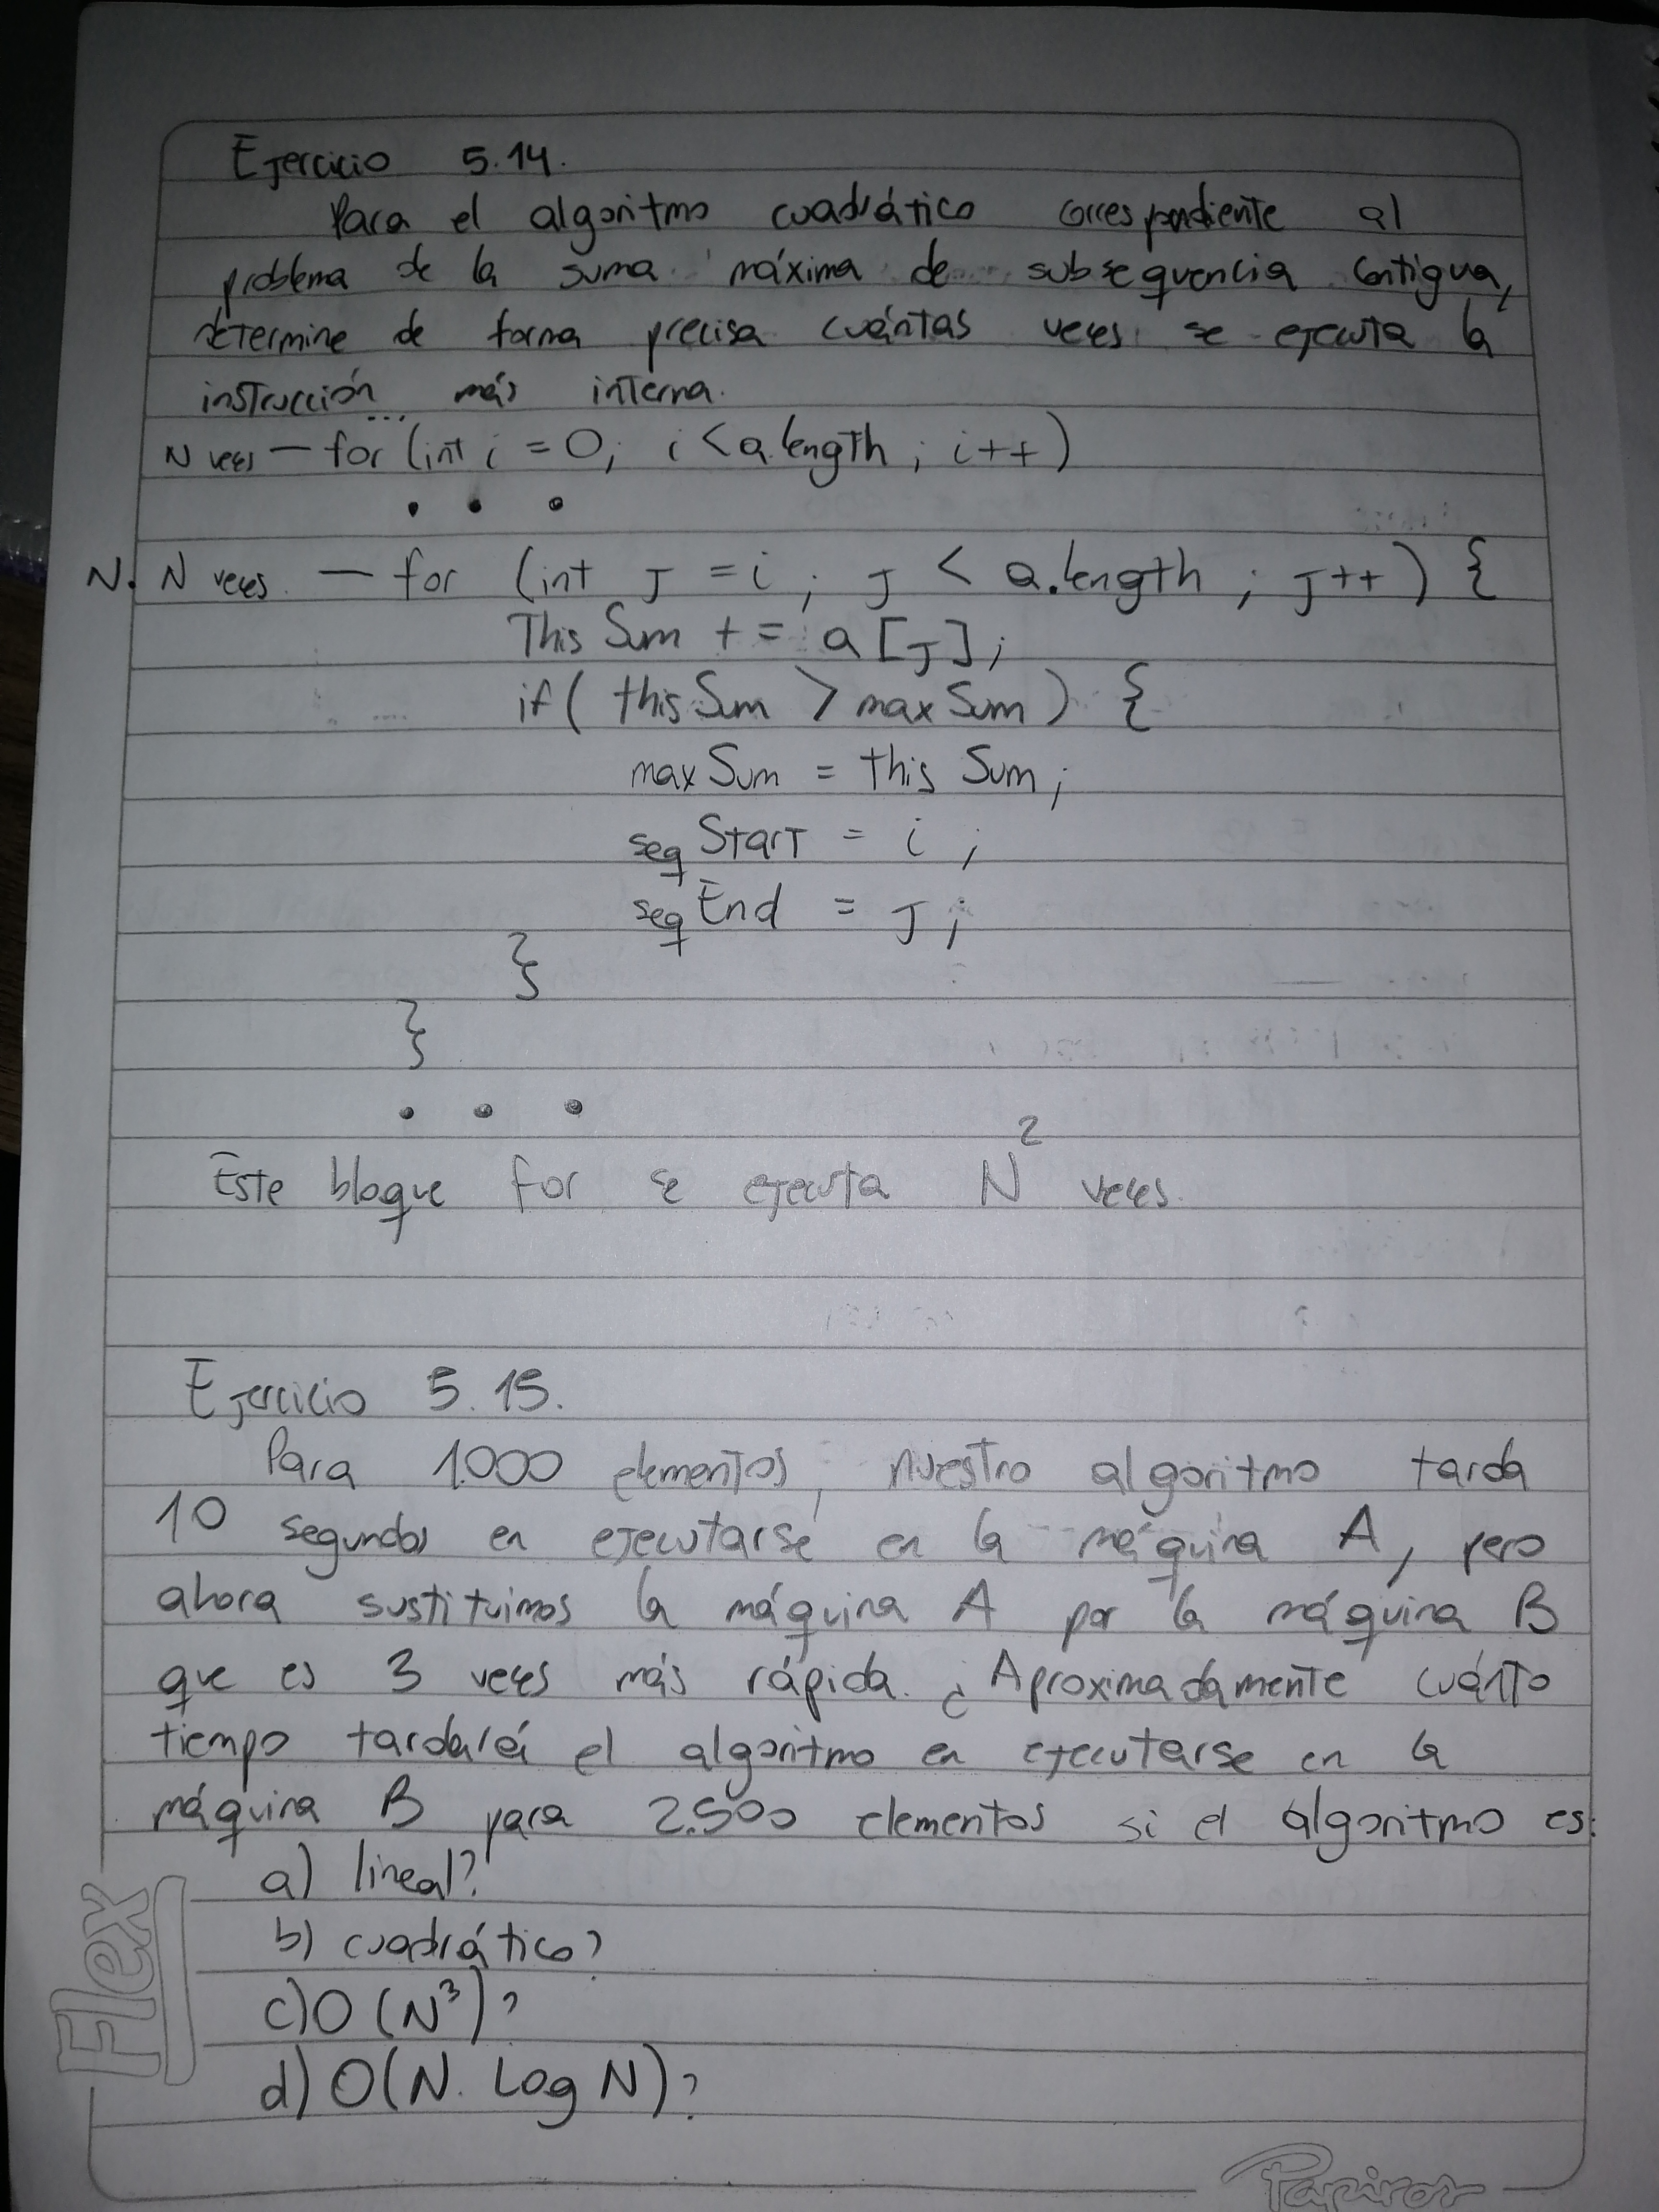 Ejercicio 5.14.
Para el algoritmo cuadrático correspondiente al
problema de la suma máxima de subsequencia contigua,
determine de forma precisa cuántas veces se ejecuta la
instrucción más interna.
...
N veces — for (int i = 0; i < a.length; i++)
• • •
N. N veces. — for (int j = i; j < a.length; j++) {
This Sum += a[j];
if( this Sum > max Sum) {
max Sum = this Sum;
seq Start = i;
seq End = j;
}
}
• • •
Este bloque for se ejecuta N² veces.
Ejercicio 5.15.
Para 1.000 elementos, nuestro algoritmo tarda
10 segundos en ejecutarse en la máquina A, pero
ahora sustituimos la máquina A por la máquina B
que es 3 veces más rápida. ¿Aproximadamente cuánto
tiempo tardará el algoritmo en ejecutarse en la
máquina B para 2.500 elementos si el algoritmo es:
a) lineal?
b) cuadrático?
c) O(N³)?
d) O(N. Log N)?
Flex
Papiros